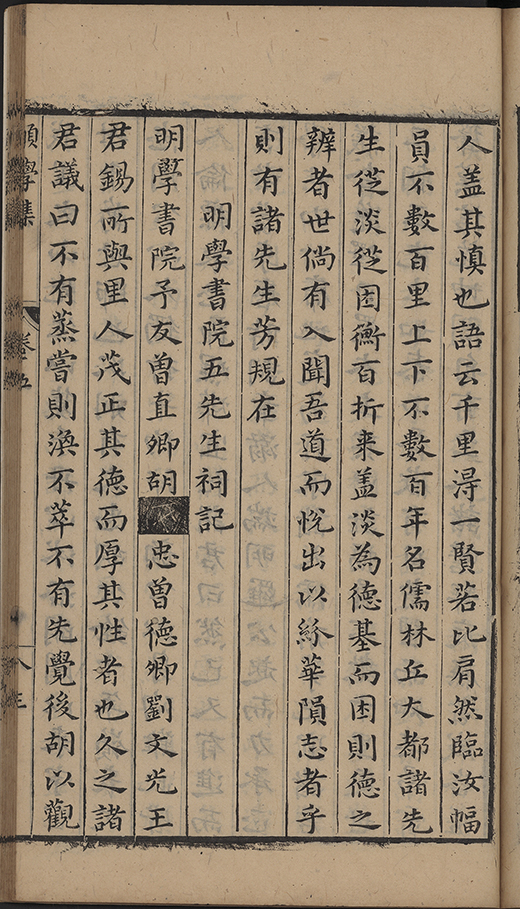 人蓋其慎也語云千里得一賢若比肩然臨汝幅
員不數百里上下不數百年名儒林丘大都諸先
生從淡從困衡百折来蓋淡為德基而困則德之
辨者世倘有入聞吾道而悅出以紛華隕志者乎
則有諸先生芳規在
明學書院五先生祠記
明學書院予友曾直卿胡忠曾德卿劉文光王
君錫所與里人茂正其德而厚其性者也久之諸
君議曰不有蒸嘗則渙不萃不有先覺後胡以觀
願學集
卷五
八三